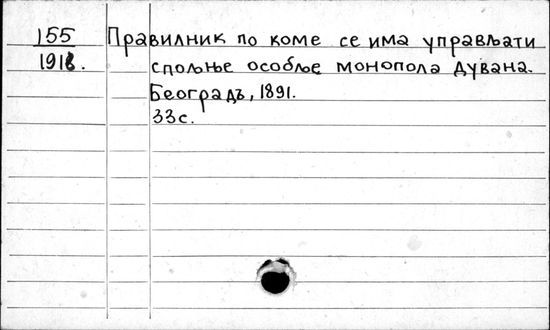 155
1918.
Правилник по коме се има управљати
спољње особље монопола дувана.
Београдъ, 1891.
33с.